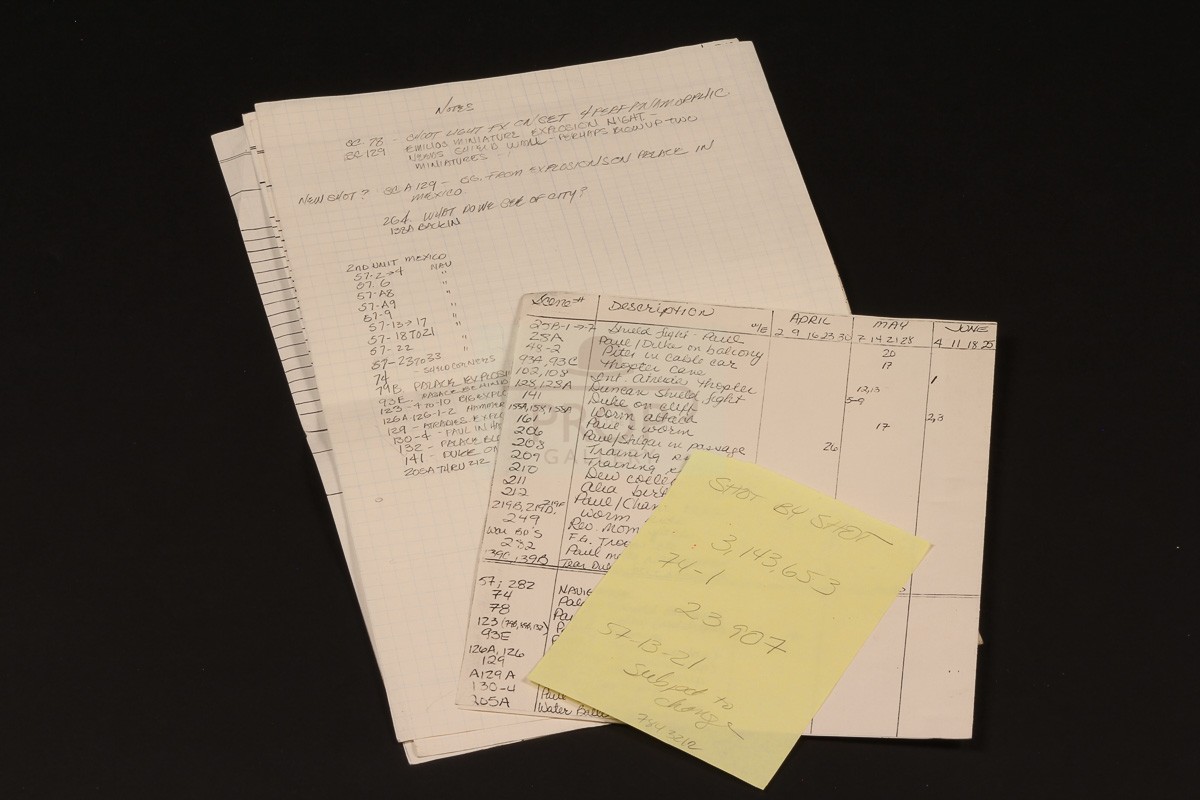 NOTES
SC 78 - SHOOT LIGHT FX ON SET 4 PERF ANAMORPHIC
SC 129 EMILIOS MINIATURE. EXPLOSION NIGHT -
NEEDS SHIELD WALL - PERHAPS BLOW UP TWO
MINIATURES
NEW SHOT? SC A 129 - BG. FROM EXPLOSIONS ON PALACE IN
MEXICO.
264 WHAT DO WE SEE OF CITY?
138A BACK IN
2ND UNIT MEXICO
57-2→4 NAV
57.6 "
57-A8 "
57-A9 "
57-9 "
57-13→17 "
57-18 TO 21 "
57-22 "
57-23 TO 33
74
79B PALACE EXPLOSI
93E PALACE BEHIND
123-4 TO-10 BIG EXPLO
126A 126-1-2 HAMMER
129 - ATRADIES EXPL
130-4 - PAUL IN
132 - PALACE BL
141 - DUKE ON
205A THRU 212
Scene # Description W/E APRIL MAY JUNE
2 9 16 23 30 7 14 21 28 4 11 18 25
25B-1→7 Shield fight - Paul 20
28A Paul/Duke on balcony 17
48-2 Piter in cable car
93A, 93C Thopter cane
102, 108 Int. Thopter 1
128, 128A Duncan Shield fight 12,13
141 Duke on cliff 5-9
155A, 158, 158A Worm attack 2,3
161 Paul & worm 17
206 Paul/Shigar in passage 26
208 Training
209 Training
210 Dew colle
211 Alia birt
212 Paul/Chan
219B, 219D, 219F worm
249 Rev. Mom
F.G. Troo
282 Paul
139C, 139B Tear
57; 282 NAVIG
74 Pal
78 Pa
123
93E
126A, 126
129
A129A
130-4 Paul
205A Water
SHOT BY SHOT
3,143,653
74-1
23,907
57-13-21
subject to
change